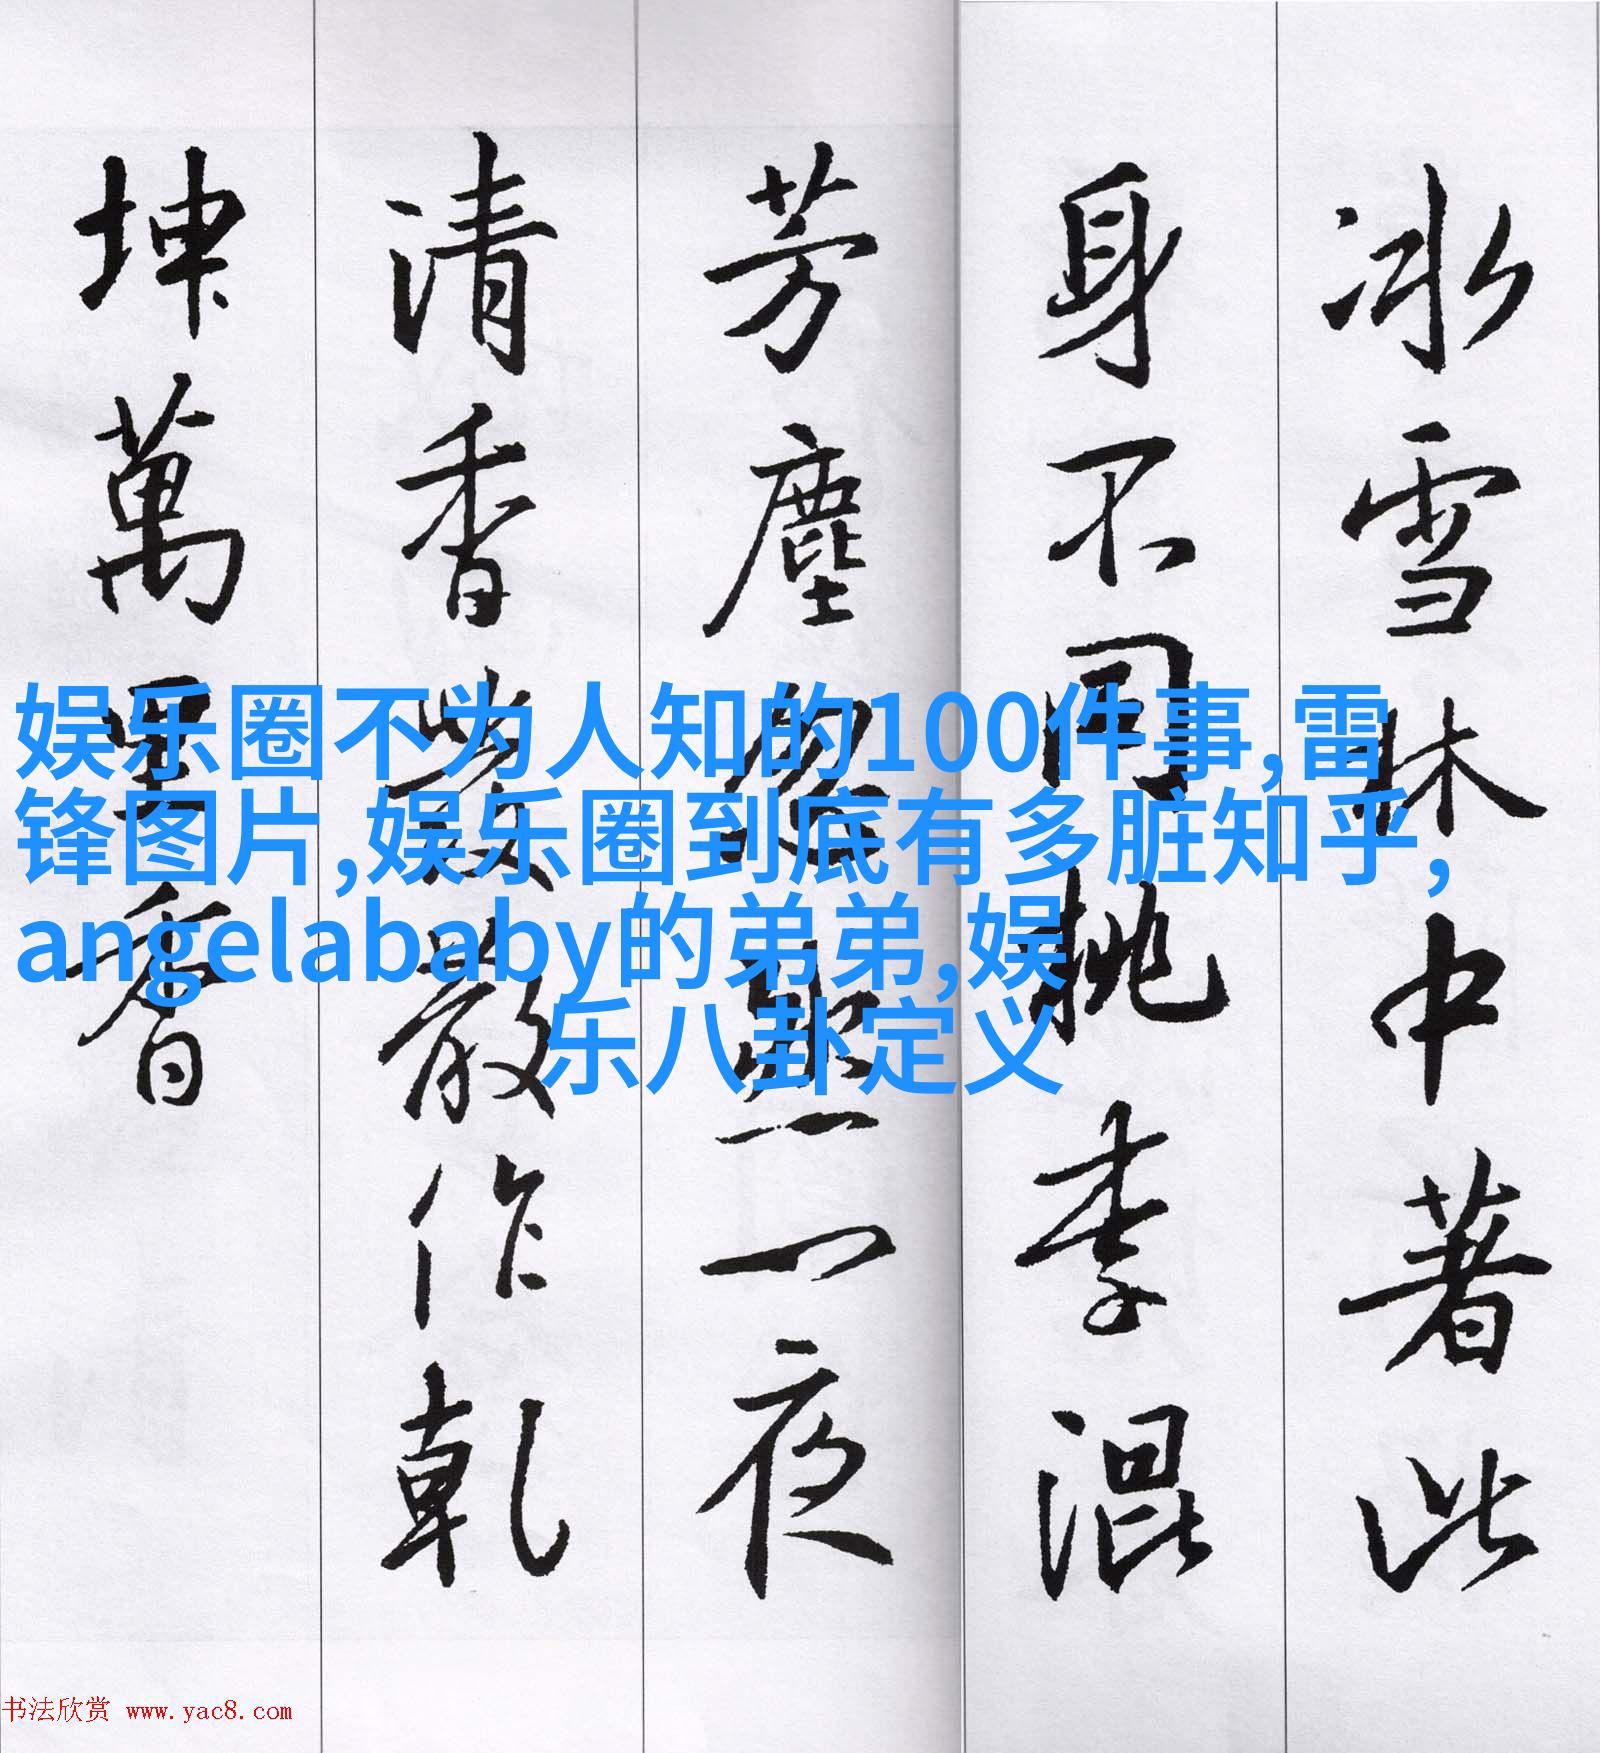 冰雪林中著此
身不同桃李混
芳塵忽然一夜
清香發散作乾
坤萬里香
娱乐圈不为人知的100件事,雷
锋图片,娱乐圈到底有多脏知乎,
angelababy的弟弟,娱
乐八卦定义
书法欣赏 www.yac8.com